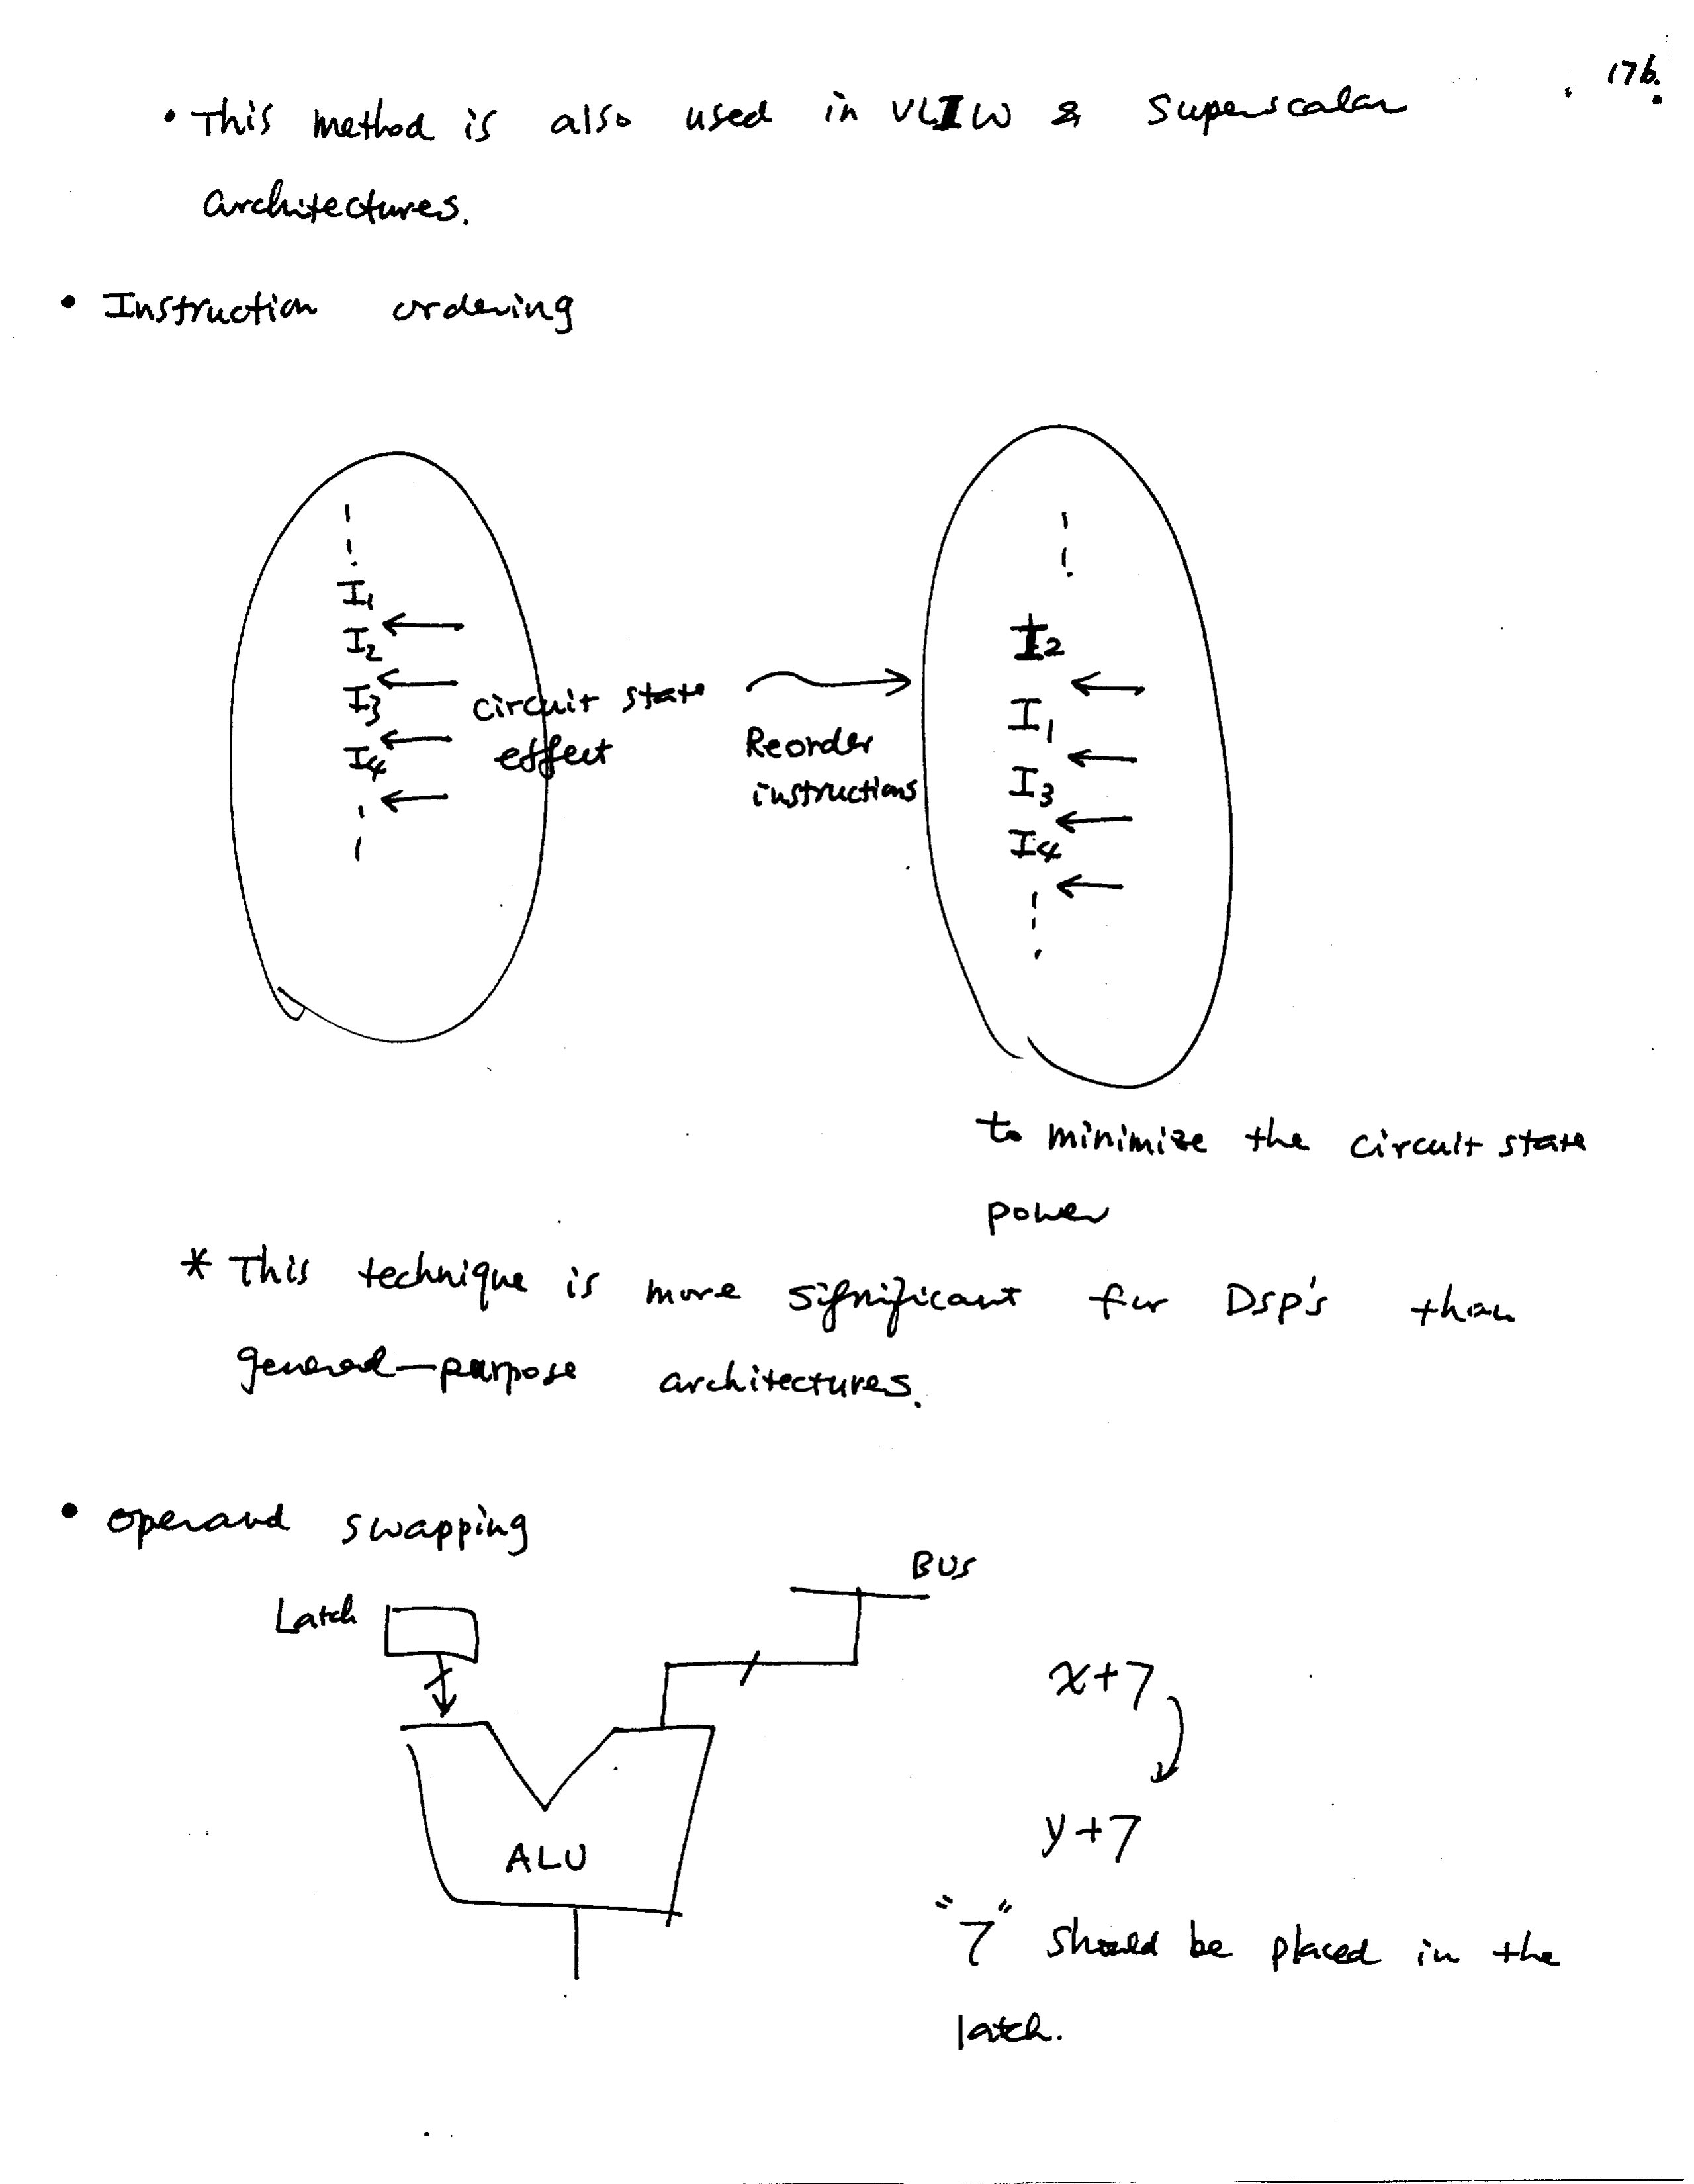 176.
• This method is also used in VLIW & Superscalar
architectures.
• Instruction ordering
I1
I2
I3
I4
circuit state
effect
Reorder
instructions
I2
I1
I3
I4
to minimize the circuit state
power
* This technique is more significant for DSP's than
general-purpose architectures.
• operand swapping
BUS
Latch
ALU
x+7
y+7
"7" should be placed in the
latch.